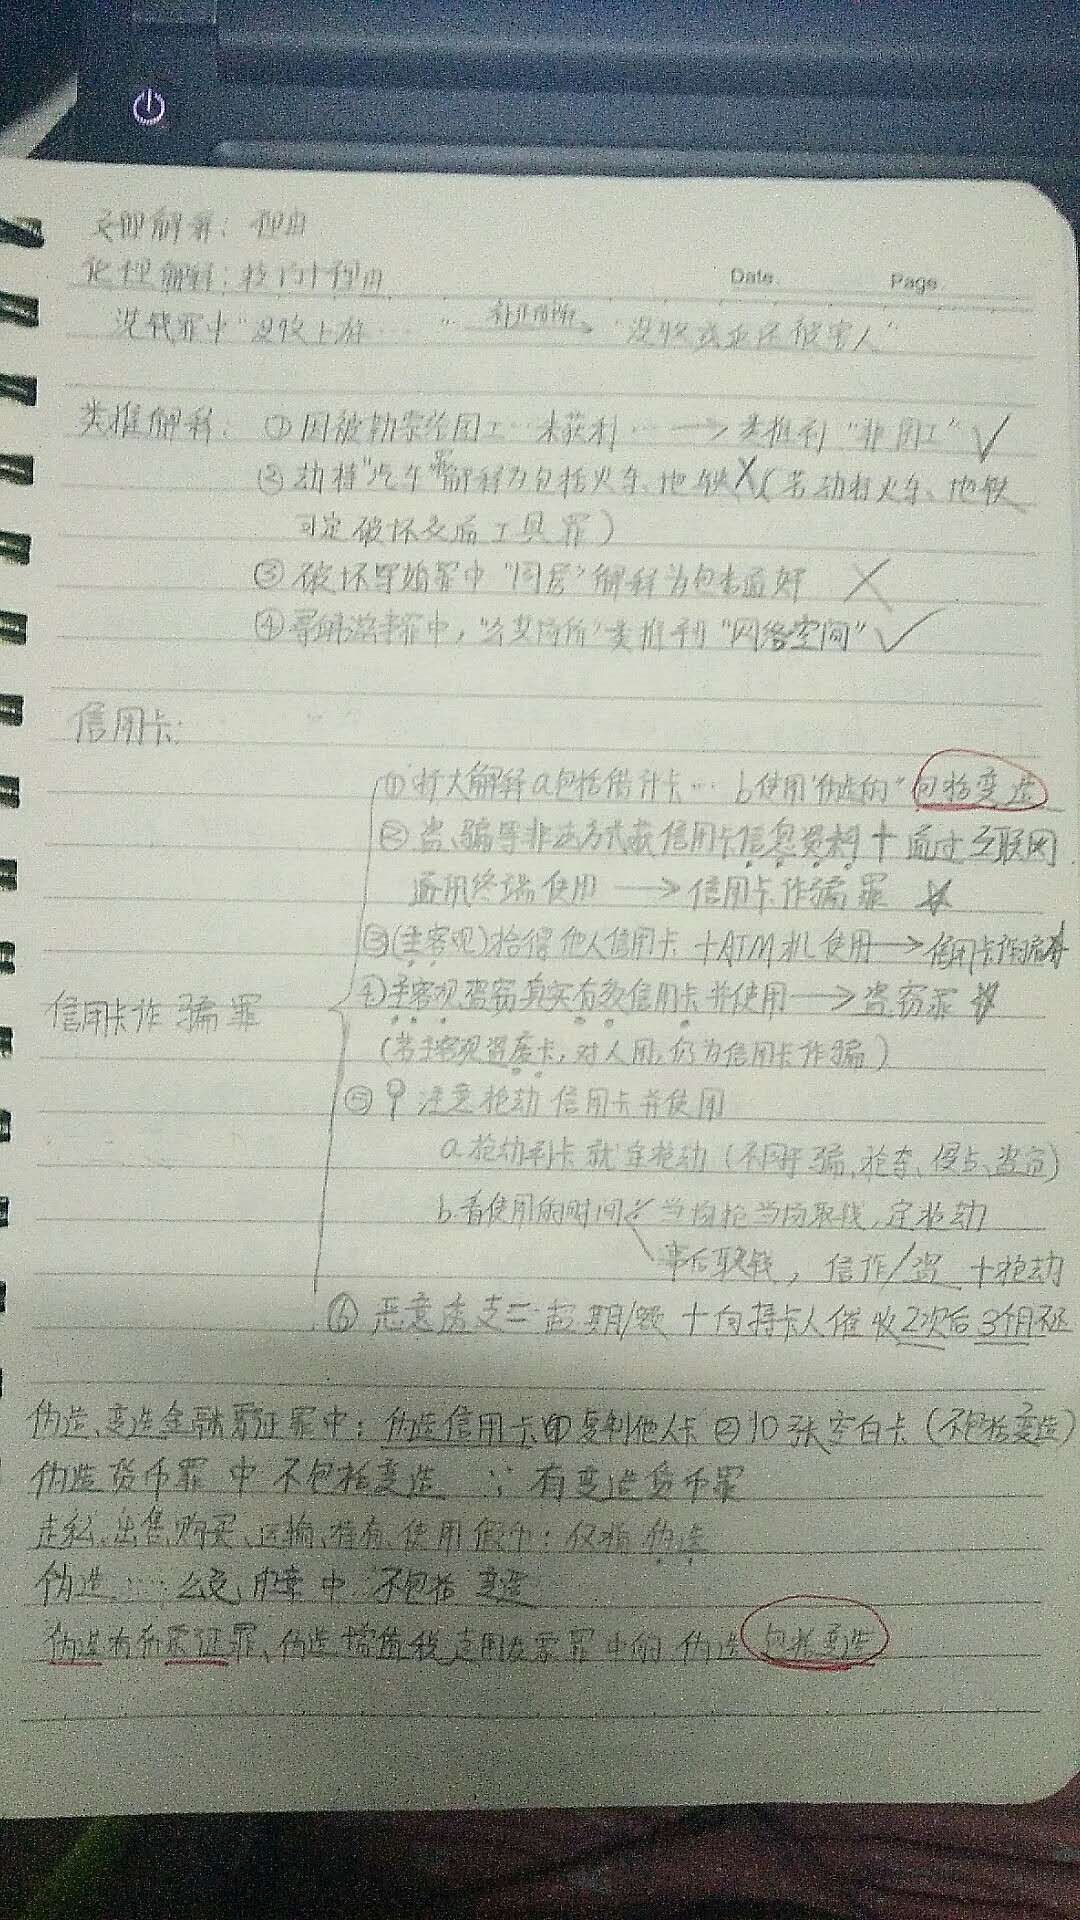 文理解释：理由
论理解释：技巧+理由
Date. Page.
洗钱罪中“没收上游……” 补正解释 “没收或返还被害人”
类推解释：①因被勒索给团工…未获利…→类推到“非国工”✓
②劫持“汽车”解释为包括火车、地铁X（若劫持火车、地铁
可定破坏交通工具罪）
③破坏军婚罪中“同居”解释为包括通奸 X
④寻衅滋事罪中，“公共场所”类推到“网络空间”✓
信用卡：
①扩大解释a包括借计卡… b使用“伪造的”包括变造
②盗、骗等非法方式获信用卡信息资料＋通过互联网
通讯终端使用→信用卡诈骗罪
③(主客观)拾得他人信用卡＋ATM机使用→信用卡诈骗
信用卡诈骗罪
④主客观盗窃真实有效信用卡并使用→盗窃罪
（若主客观盗废卡，对人用，仍为信用卡诈骗）
⑤注意抢劫信用卡并使用
a.抢劫到卡就定抢劫（不同于骗、抢夺、侵占、盗窃）
b.看使用的时间 当场抢当场取钱，定抢劫
事后取钱，信诈/盗＋抢劫
⑥恶意透支＝超期/额＋向持卡人催收2次后3个月不还
伪造、变造金融票证罪中：伪造信用卡①复制他人卡②10张空白卡（不包括变造）
伪造货币罪中不包括变造 ∵有变造货币罪
走私、出售、购买、运输、持有、使用假币：仅指伪造
伪造……公文、印章中 不包括变造
伪造有价票证罪、伪造增值税专用发票罪中的伪造包括变造